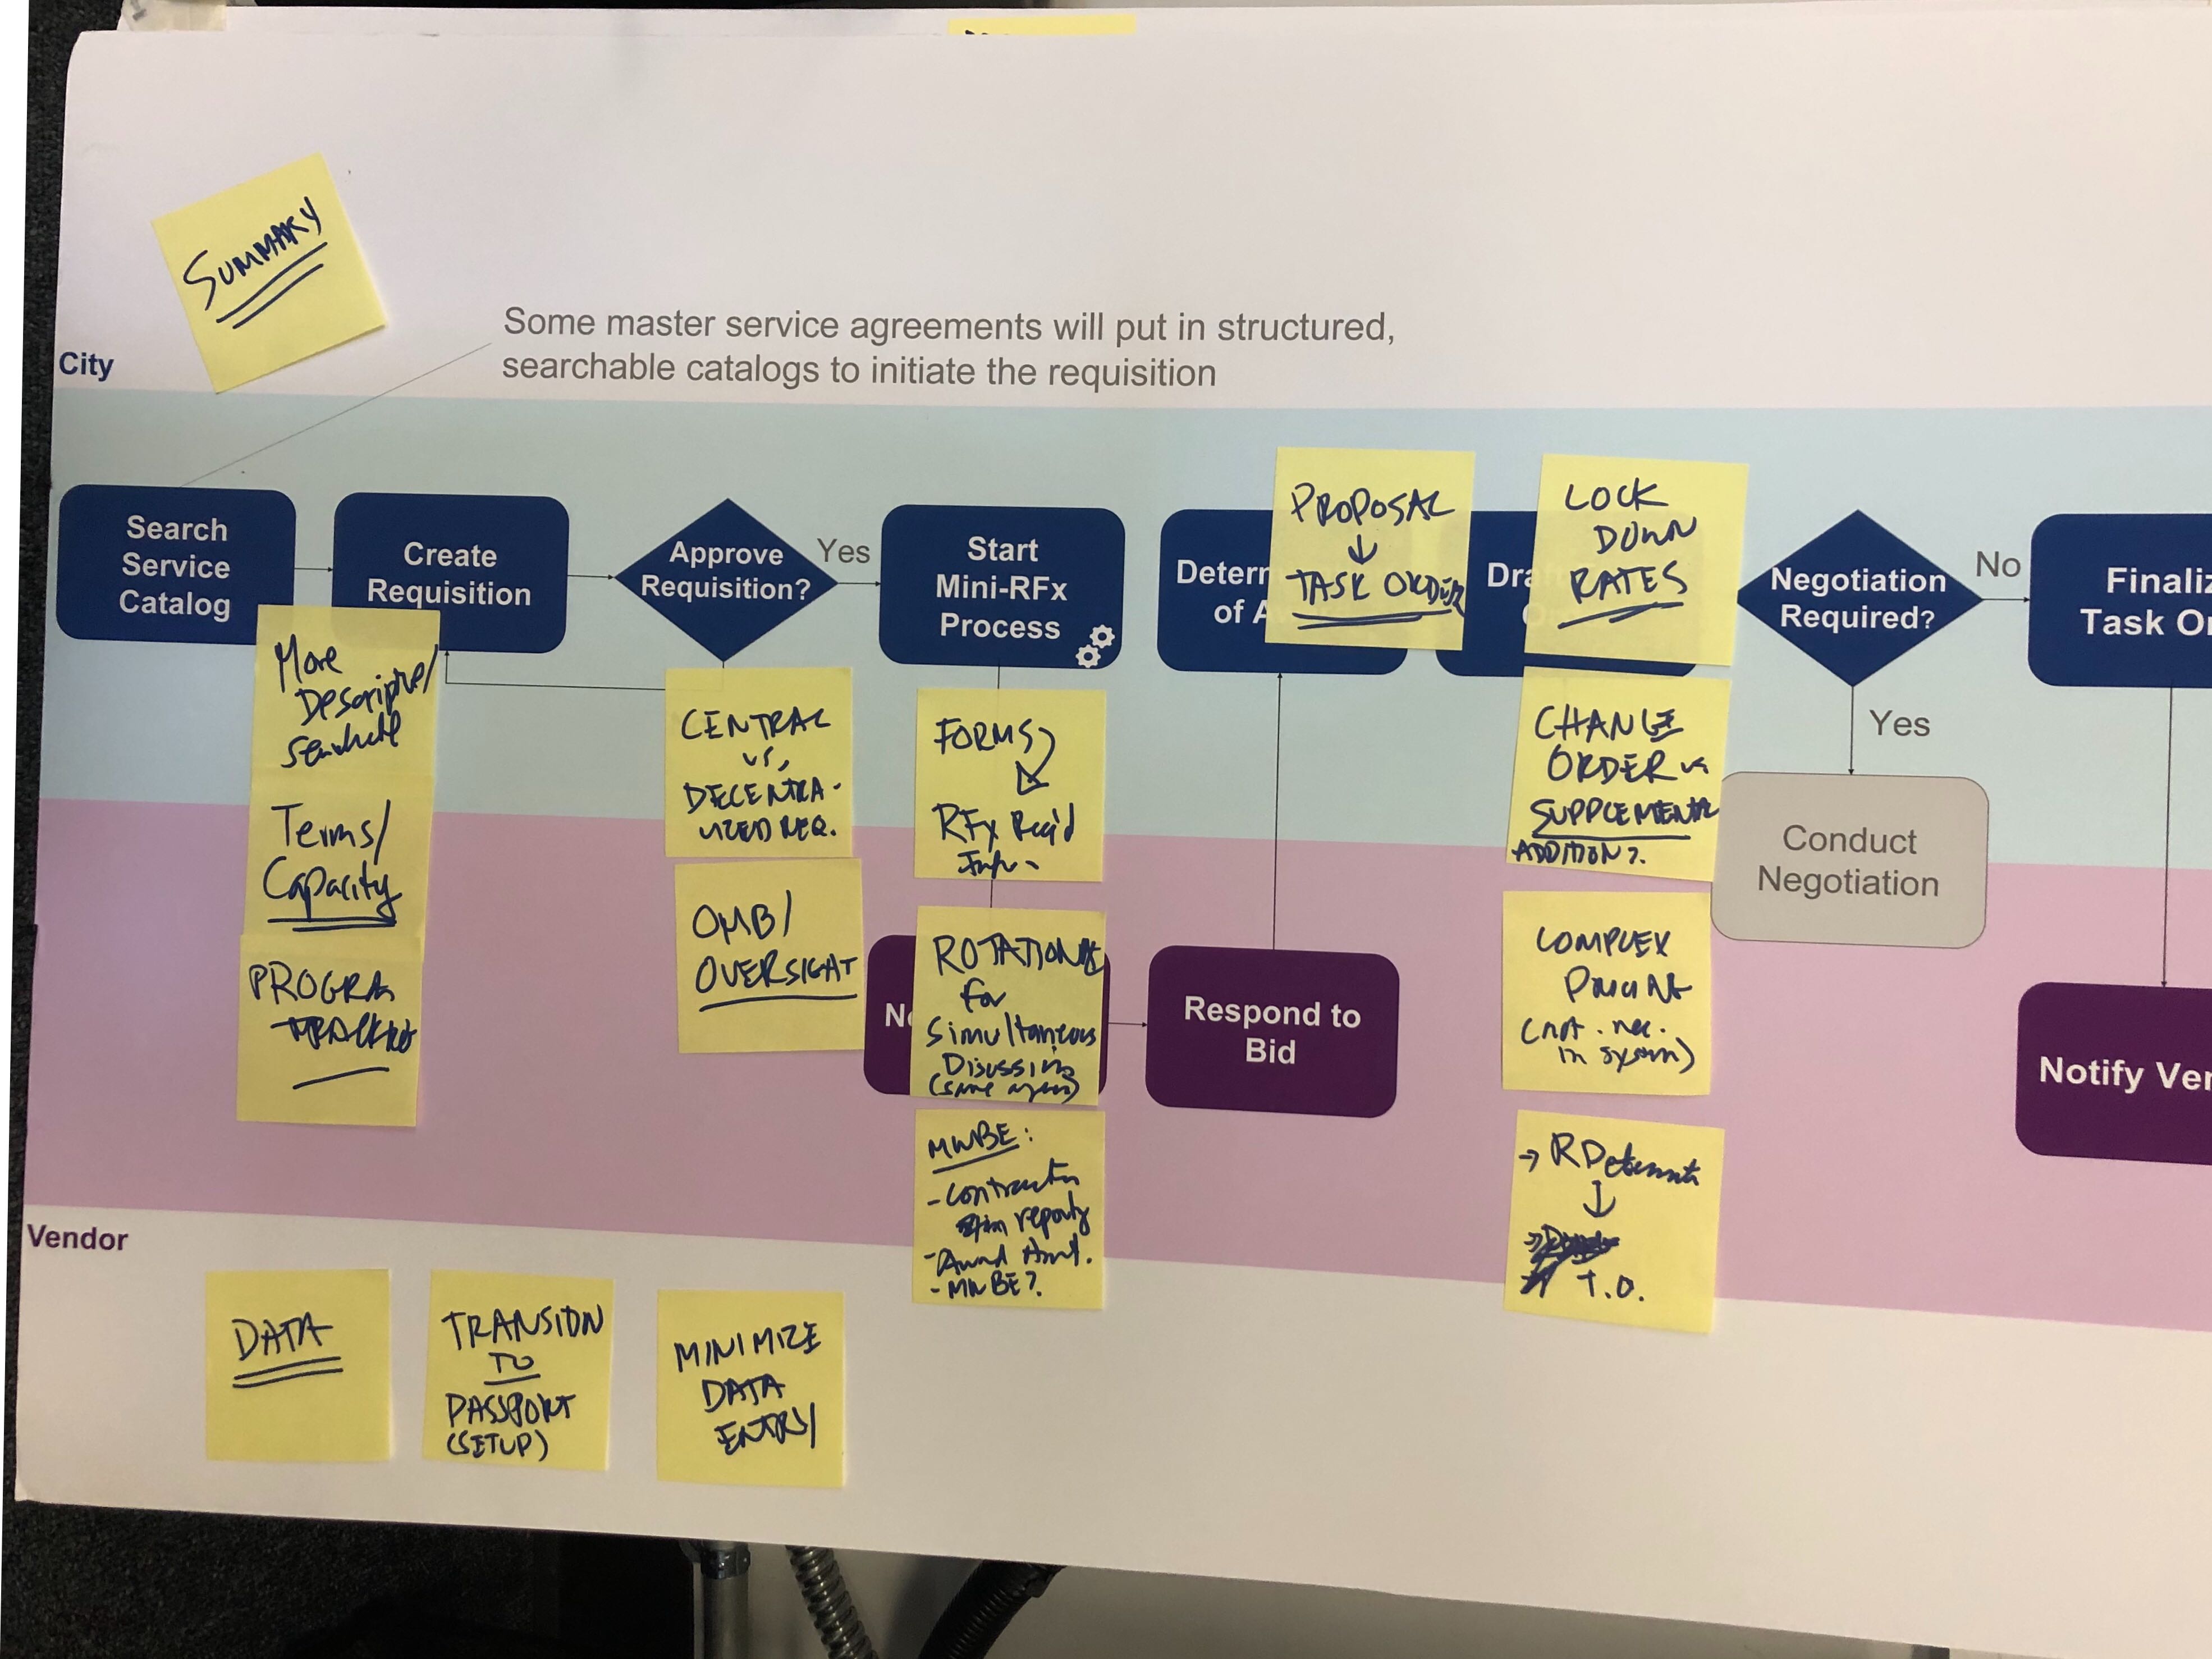 SUMMARY
Some master service agreements will put in structured,
searchable catalogs to initiate the requisition
City
Search
Service
Catalog
Create
Requisition
Approve
Requisition?
Yes
Start
Mini-RFx
Process
Deter
of A
PROPOSAL
↓
TASK ORDER
Dra
LOCK
DOWN
RATES
Negotiation
Required?
No
Finaliz
Task Or
Yes
Conduct
Negotiation
More
Descriptive/
Terms/
Capacity
PROGRAM
CENTRAL
vs.
DECENTRA-
LIZED REQ.
OMB/
OVERSIGHT
FORMS
RFx Req'd
Info.
ROTATION
for
Simultaneous
Discussing
(same agency)
MWBE:
- Contractor
- Award Amt.
- MWBE?
CHANGE
ORDER vs
SUPPLEMENTAL
ADDITION?
COMPLEX
(not. nec.
in system)
→
↓
T.O.
No
Respond to
Bid
Notify Ver
Vendor
DATA
TRANSIDN
TO
PASSPORT
(SETUP)
MINIMIZE
DATA
ENTRY